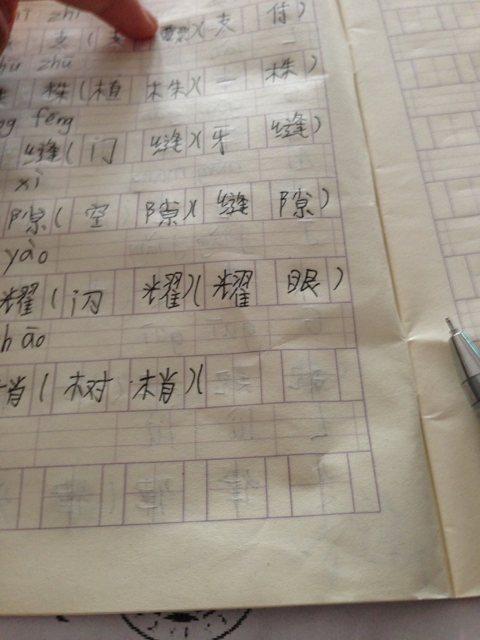 zhī
支(支票)(支付)
zhū zhū
株 株(植株)(一株)
fèng fèng
缝(门缝)(牙缝)
xì
隙(空隙)(缝隙)
yào
耀(闪耀)(耀眼)
shāo
梢(树梢)(